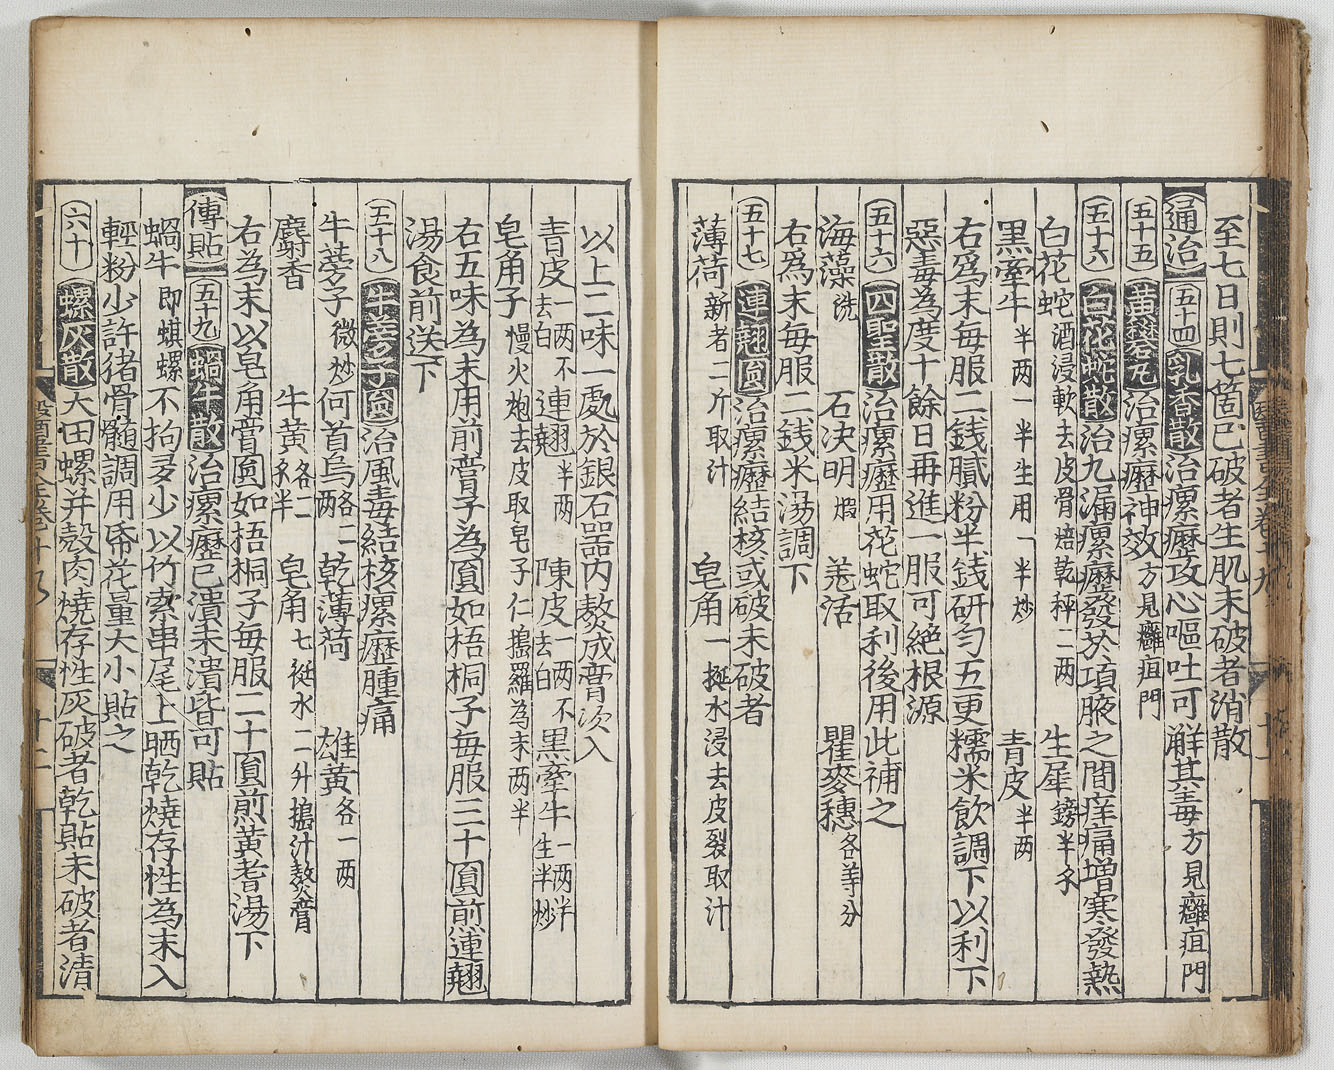 至七日則七箇已破者生肌未破者消散
通治 五十四 乳香散 治瘰癧攻心嘔吐可觧其毒方見癰疽門
五十五 黃礬丸 治瘰癧神效方見癰疽門
五十六 白花蛇散 治九漏瘰癧發於項腋之間痒痛增寒發熱
白花蛇酒浸軟去皮骨焙乾秤二两 生犀鎊半
黑牽牛半两一半生用一半炒 青皮半两
右爲末每服二銭膩粉半銭研勻五更糯米飲調下以利下
惡毒為度十餘日再進一服可絶根源
五十六 四聖散 治瘰癧用花蛇取利後用此補之
海藻洗 石决明煆 羗活 瞿麥穗各等分
右爲末每服二銭米湯調下
五十七 連翹圎 治瘰癧結核或破未破者
薄荷新者二斤取汁 皂角一挺水浸去皮裂取汁
以上二味一處於銀石器内熬成膏次入
青皮一两不去白 連翹半两 陳皮一两不去白 黑牽牛一两半生半炒
皂角子慢火炮去皮取皂子仁搗羅為末两半
右五味為末用前膏子為圎如梧桐子每服三十圎煎連翹
湯食前送下
五十八 牛蒡子圎 治風毒結核瘰癧腫痛
牛蒡子微炒 何首烏各二两 乾薄荷 雄黃各一两
麝香 牛黃各二半 皂角七挺水二升搗汁熬膏
右為末以皂角膏圎如梧桐子每服二十圎煎黃耆湯下
傅貼 五十九 蝸牛散 治瘰癧已潰未潰皆可貼
蝸牛即蜞螺不拘多少以竹索串尾上晒乾燒存性為末入
輕粉少許猪骨髓調用帋花量大小貼之
六十 螺灰散 大田螺并殼肉燒存性灰破者乾貼未破者清